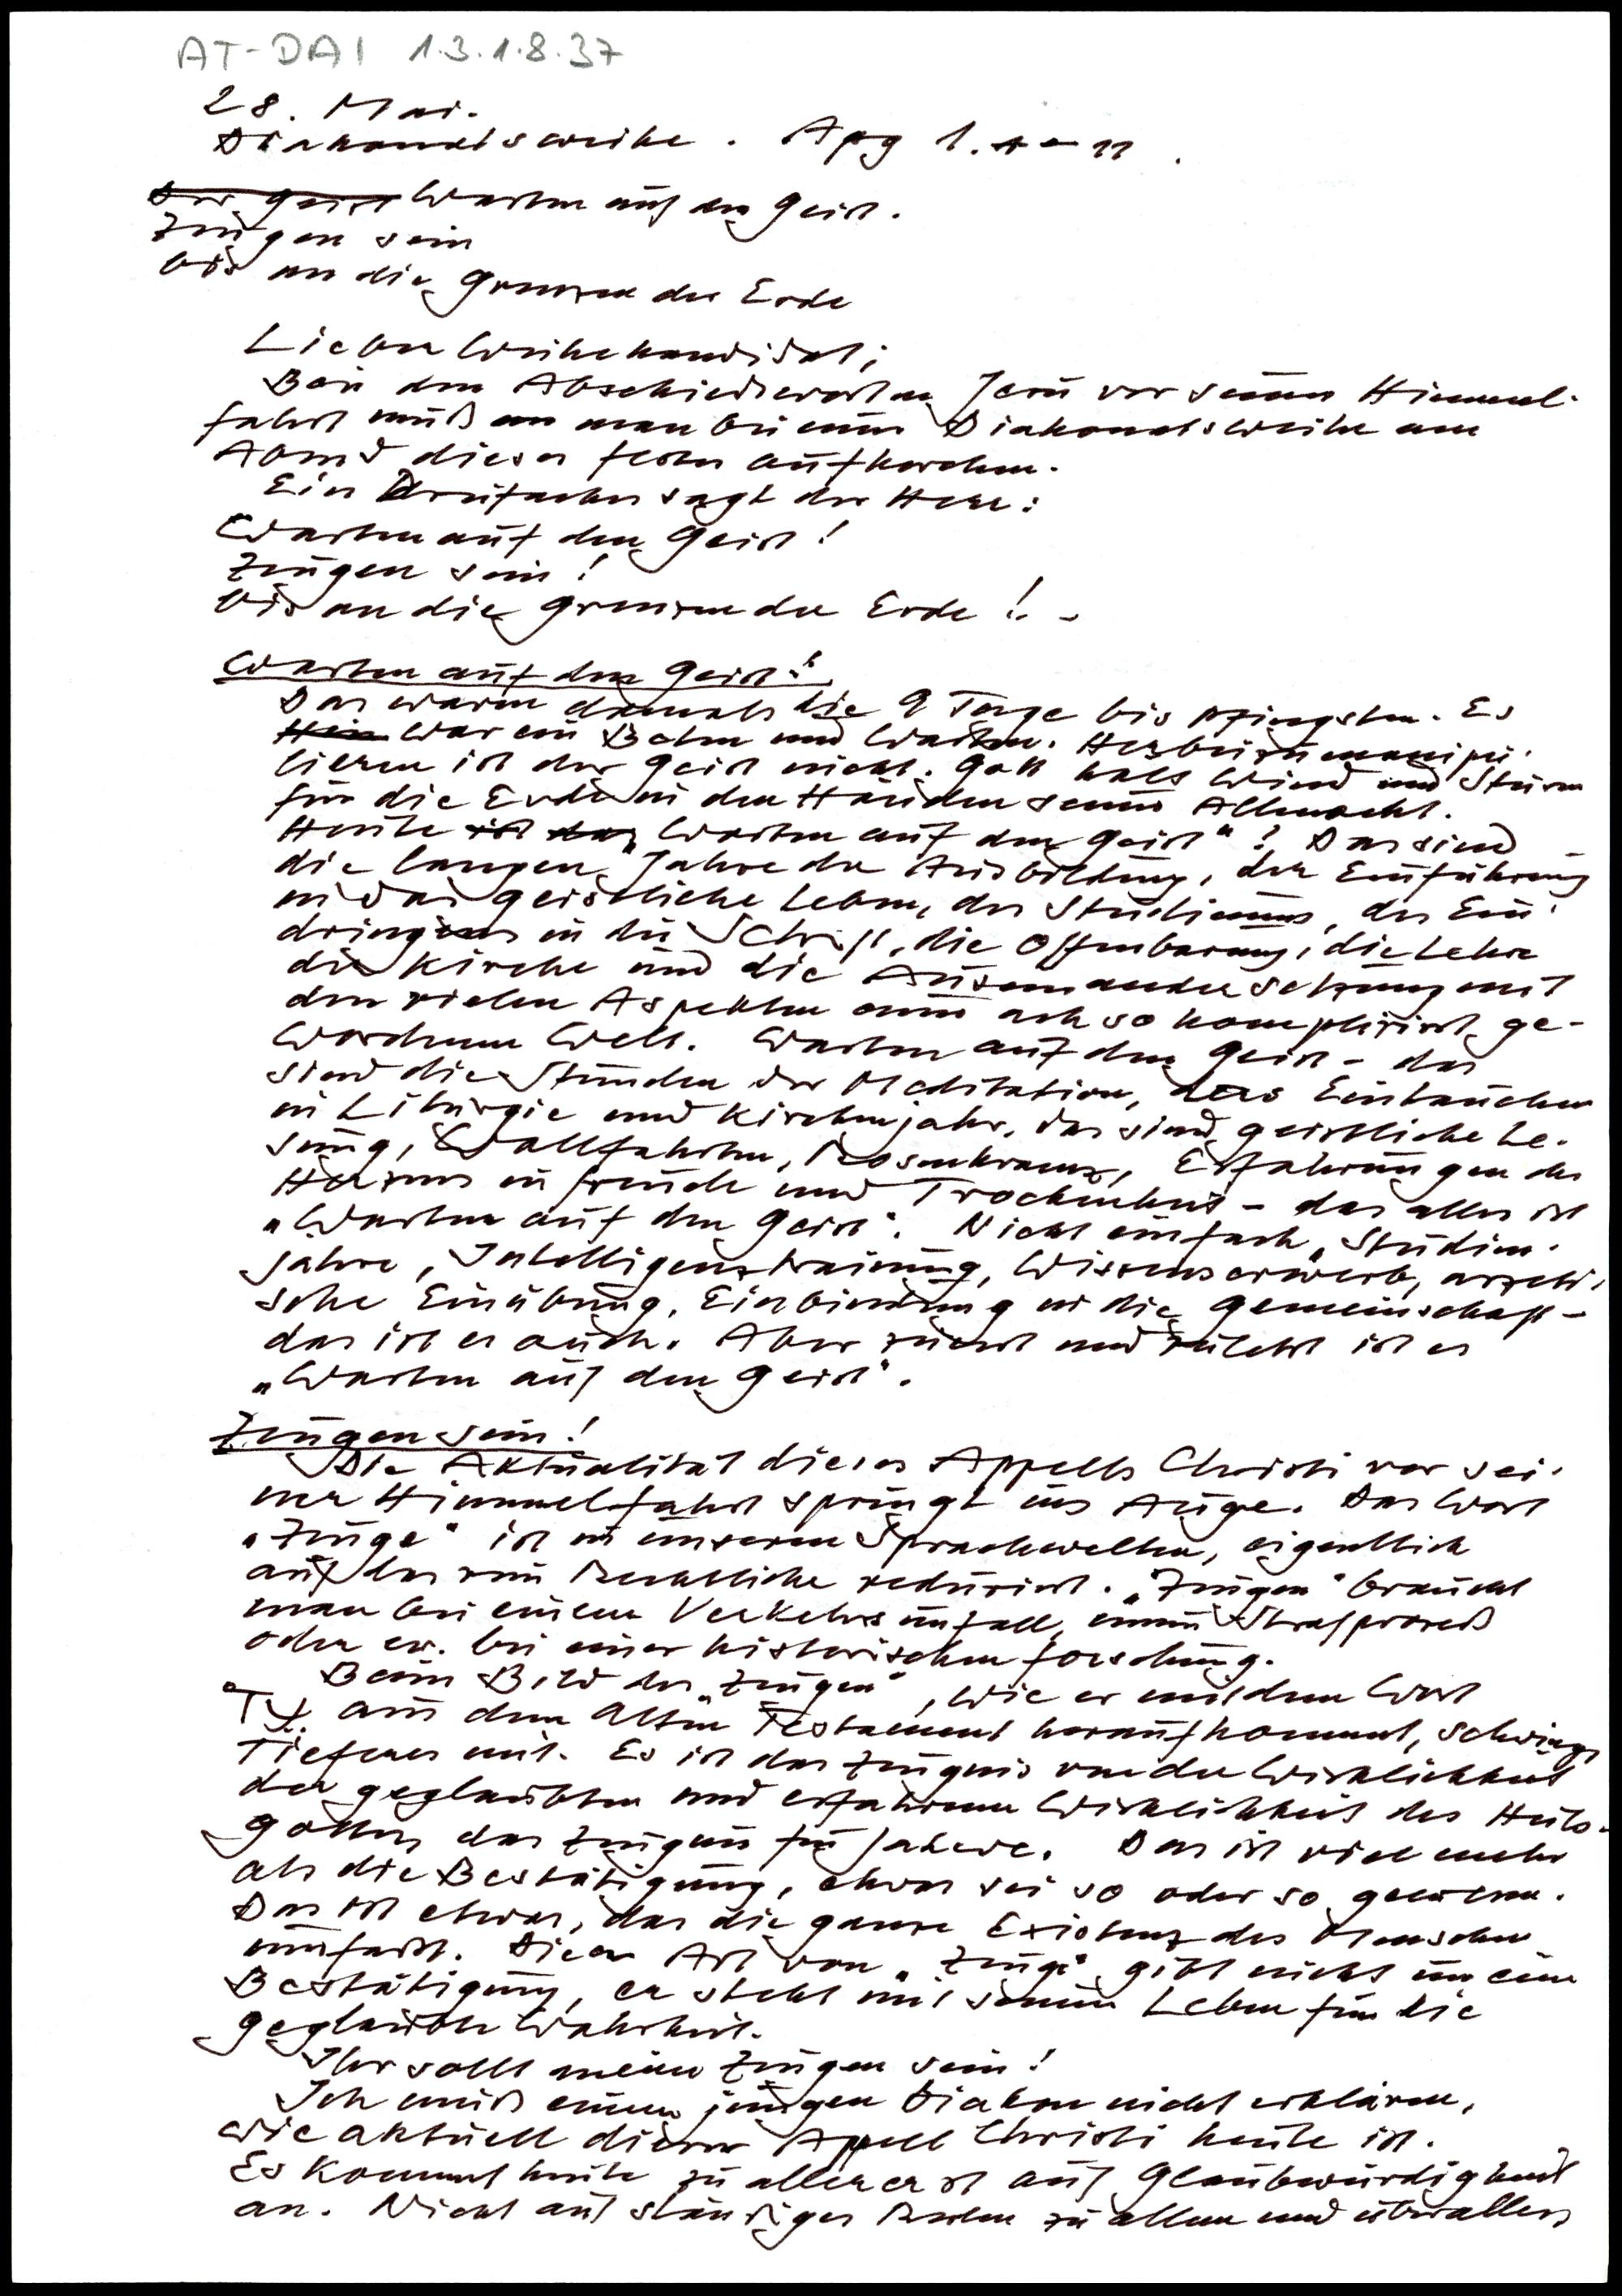 AT-DAI 1.3.1.8.37
28. Mai.
Diakonatsweihe. Apg 1.1-11.
Der Geist Warten auf den Geist.
Zeugen sein
bis an die Grenzen der Erde
Lieber Weihekandidat,
Bei den Abschiedsworten Jesu vor seiner Himmel-
fahrt muß man bei einer Diakonatsweihe am
Abend dieses Festes aufhorchen.
Ein Dreifaches sagt der Herr:
Warten auf den Geist!
Zeugen sein!
bis an die Grenzen der Erde! -
Warten auf den Geist!
Das waren damals die 9 Tage bis Pfingsten. Es
war ein Beten und Warten. Herbeizumanipu-
lieren ist der Geist nicht. Gott hält Wind und Sturm
für die Erde in den Händen seiner Allmacht.
Heute ist das "Warten auf den Geist"? Das sind
die langen Jahre der Ausbildung, der Einführung
in das geistliche Leben, des Studiums, des Ein-
dringens in die Schrift, die Offenbarung, die Lehre
der Kirche und die Auseinandersetzung mit
den vielen Aspekten einer ach so kompliziert ge-
wordenen Welt. Warten auf den Geist - das
sind die Stunden der Meditation, des Eintauchen
in Liturgie und Kirchenjahr, das sind geistliche Le-
sung, Wallfahrten, Rosenkranz, Erfahrungen des
Herzens in Freude und Trockenheit - das alles ist
"Warten auf den Geist". Nicht einfach "Studien-
jahre, Intelligenztraining, Wissenserwerb, aszeti-
sche Einübung, Einbindung in die Gemeinschaft -
das ist es auch. Aber zuerst und zuletzt ist es
"Warten auf den Geist".
Zeugen sein!
Die Aktualität dieses Appells Christi vor sei-
ner Himmelfahrt springt ins Auge. Das Wort
"Zeuge" ist in unseren Sprachwelten, eigentlich
auf das rein Rechtliche reduziert. "Zeugen" braucht
man bei einem Verkehrsunfall, einem Strafprozeß
oder ev. bei einer historischen Forschung.
Beim Bild des "Zeugen", wie er mit dem Wort
aus dem Alten Testament heraufkommt, schwingt
Tieferes mit. Es ist das Zeugnis von der Wirklichkeit
der geglaubten und erfahrenen Wirklichkeit des Heils-
gottes, das Zeugnis für Jahwe. Das ist viel mehr
als die Bestätigung, etwas sei so oder so gewesen.
Das ist etwas, das die ganze Existenz des Menschen
umfaßt. Diese Art von "Zeuge" gibt nicht nur eine
Bestätigung, er steht mit seinem Leben für die
geglaubte Wahrheit.
Ihr sollt meine Zeugen sein!
Ich muß einem jungen Diakon nicht erklären,
wie aktuell dieser Appell Christi heute ist.
Es kommt heute zu allererst auf Glaubwürdigkeit
an. Nicht auf ständiges Reden zu allem und über alles,